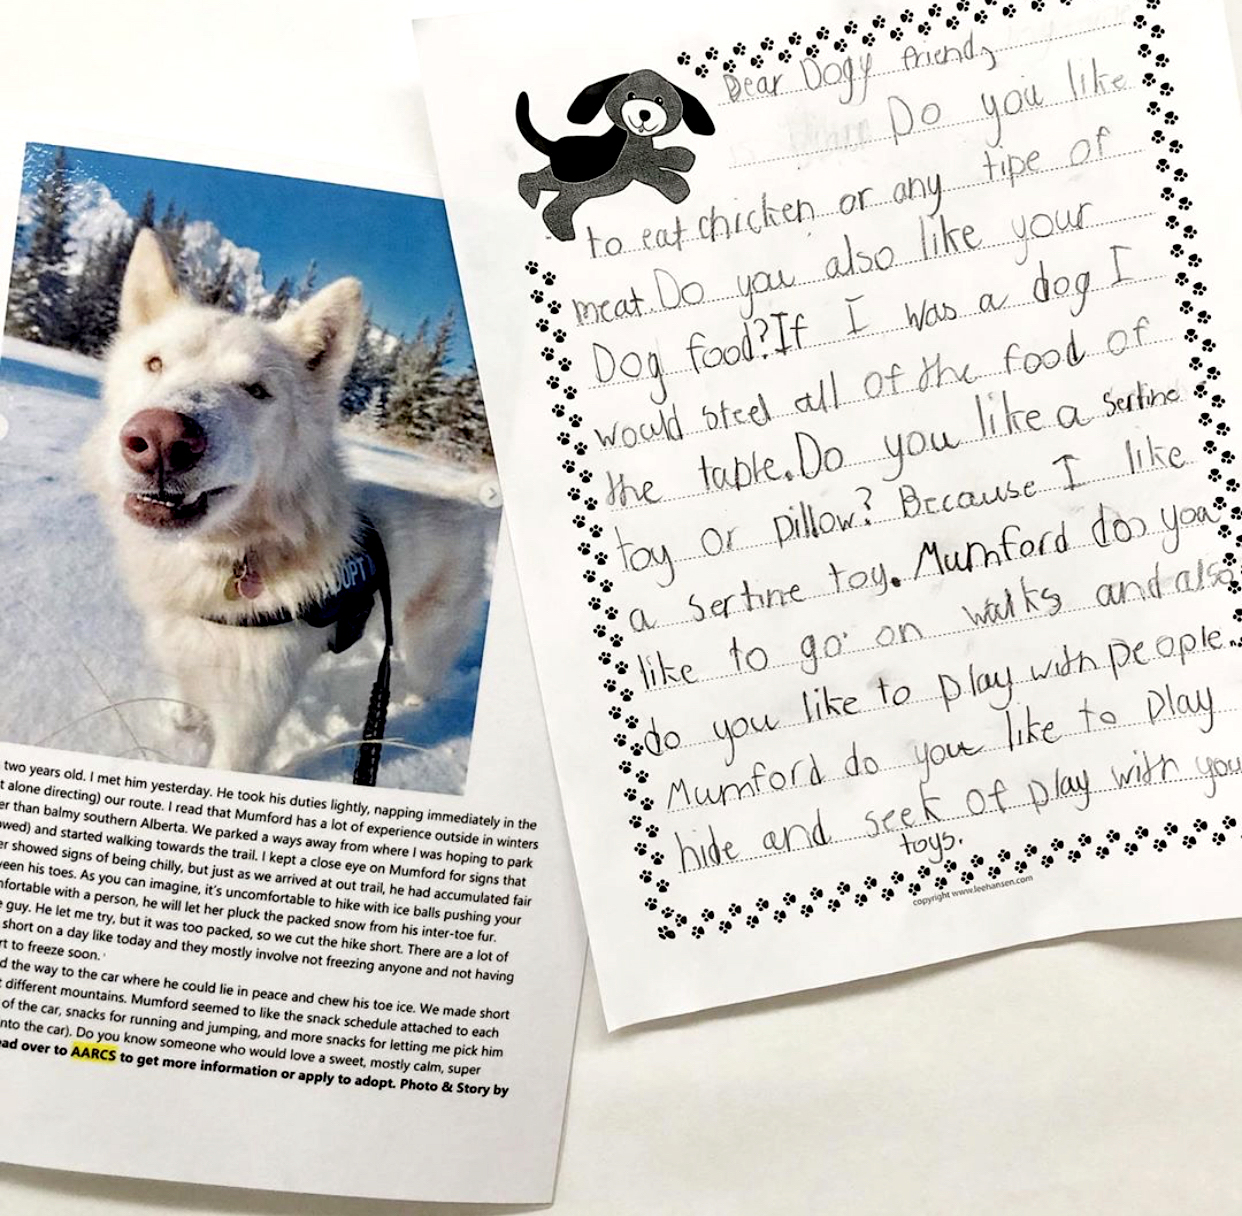 OOPT
two years old. I met him yesterday. He took his duties lightly, napping immediately in the
t alone directing) our route. I read that Mumford has a lot of experience outside in winters
er than balmy southern Alberta. We parked a ways away from where I was hoping to park
owed) and started walking towards the trail. I kept a close eye on Mumford for signs that
er showed signs of being chilly, but just as we arrived at out trail, he had accumulated fair
een his toes. As you can imagine, it's uncomfortable to hike with ice balls pushing your
nfortable with a person, he will let her pluck the packed snow from his inter-toe fur.
e guy. He let me try, but it was too packed, so we cut the hike short. There are a lot of
short on a day like today and they mostly involve not freezing anyone and not having
rt to freeze soon.
d the way to the car where he could lie in peace and chew his toe ice. We made short
t different mountains. Mumford seemed to like the snack schedule attached to each
of the car, snacks for running and jumping, and more snacks for letting me pick him
nto the car). Do you know someone who would love a sweet, mostly calm, super
ad over to AARCS to get more information or apply to adopt. Photo & Story by
Dear Dogy friend,
Do you like
to eat chicken or any tipe of
meat. Do you also like your
Dog food? If I was a dog I
would steel all of the food of
the table. Do you like a sertine
toy or pillow? Because I like
a sertine toy. Mumford do you
like to go on walks and also
do you like to play with people.
Mumford do you like to play
hide and seek of play with you
toys.
copyright www.leehansen.com